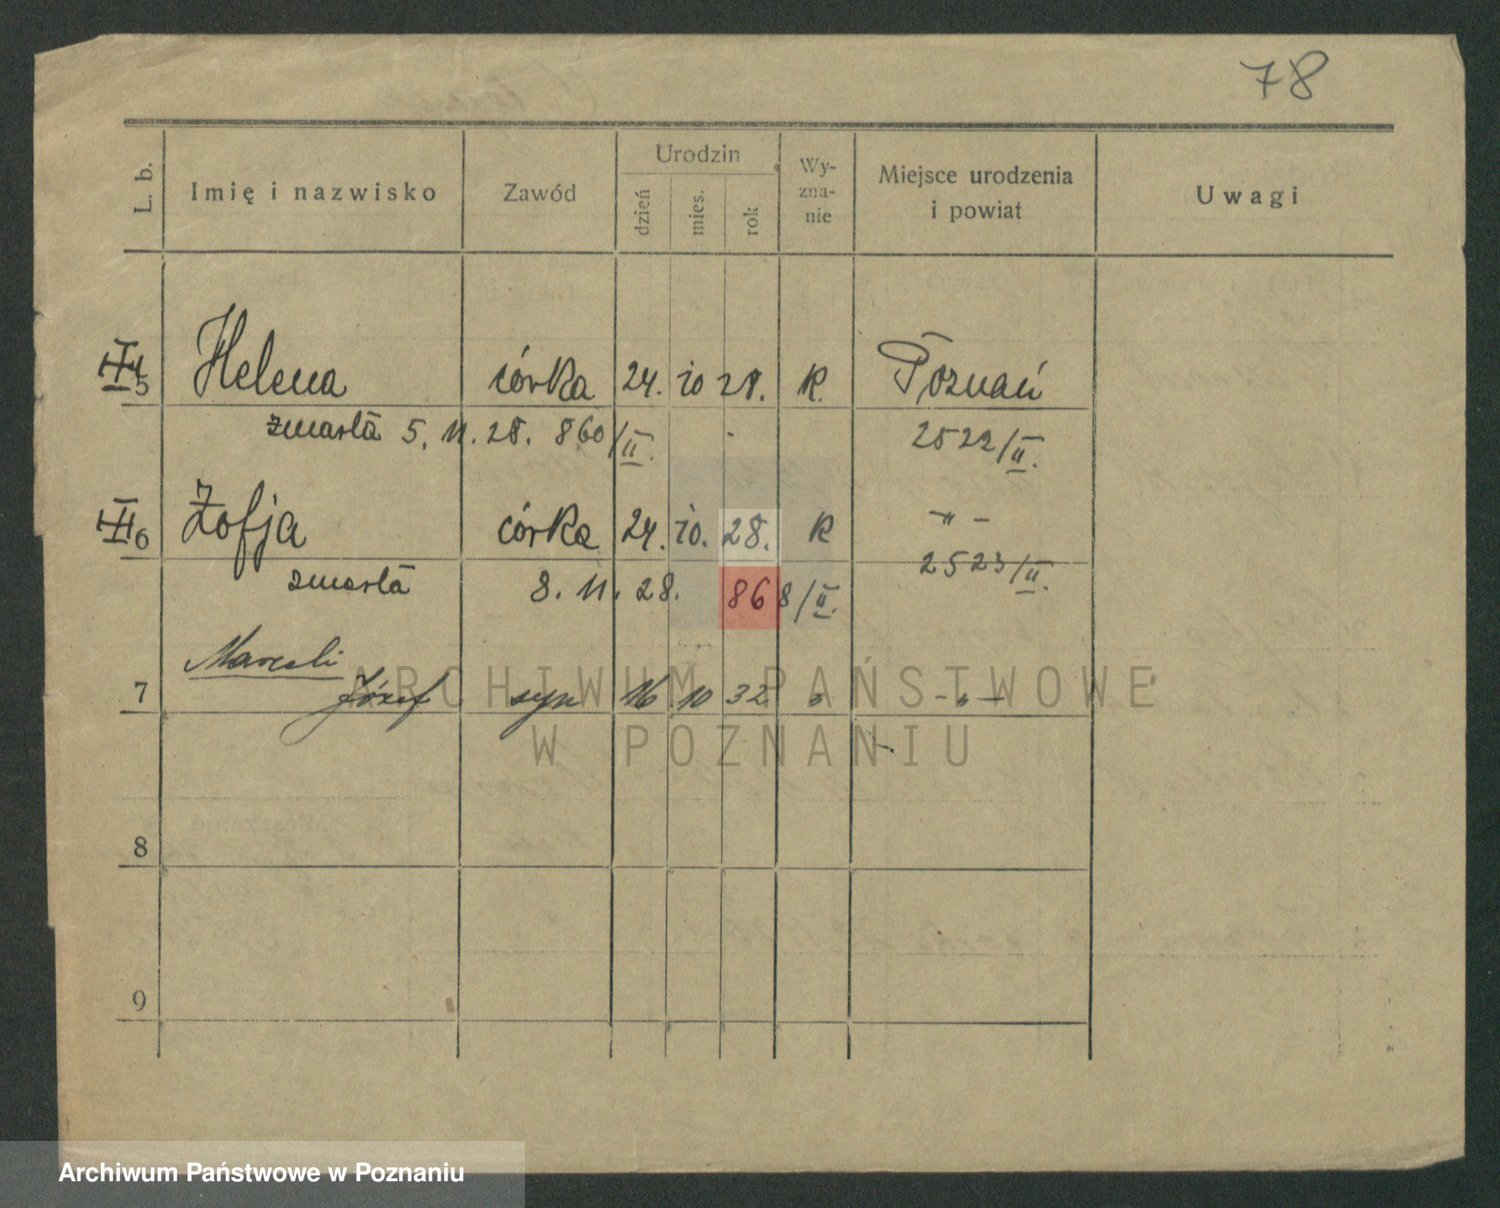 78
L. b. Imię i nazwisko Zawód Urodzin dzień mies. rok Wy-zna-nie Miejsce urodzenia i powiat Uwagi
5 Helena córka 24. 10 28. K. Poznań
zmarła 5. 11. 28. 860/II. 2522/II.
6 Zofja córka 24. 10. 28. K -"-
2523/II.
zmarła 8. 11. 28. 868/II.
Marceli
7 Józef syn 16 10 32 -"-
ARCHIWUM PAŃSTWOWE
W POZNANIU
8
9
Archiwum Państwowe w Poznaniu